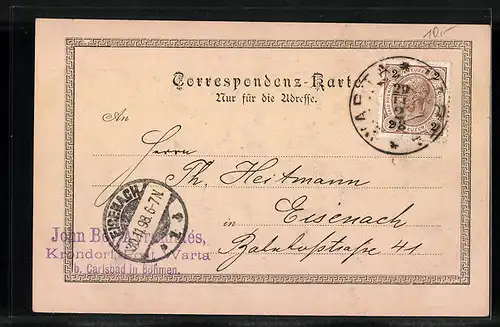 10,-
Correspondenz-Karte
Nur für die Adresse.
WARTA
29
11
98
2
2
An
Herrn
Th. Heitmann
in Eisenach
Bahnhofstraße 41
EISENACH
30.11.98.6-7N.
John
Krondorf Warta
b. Carlsbad in Böhmen.